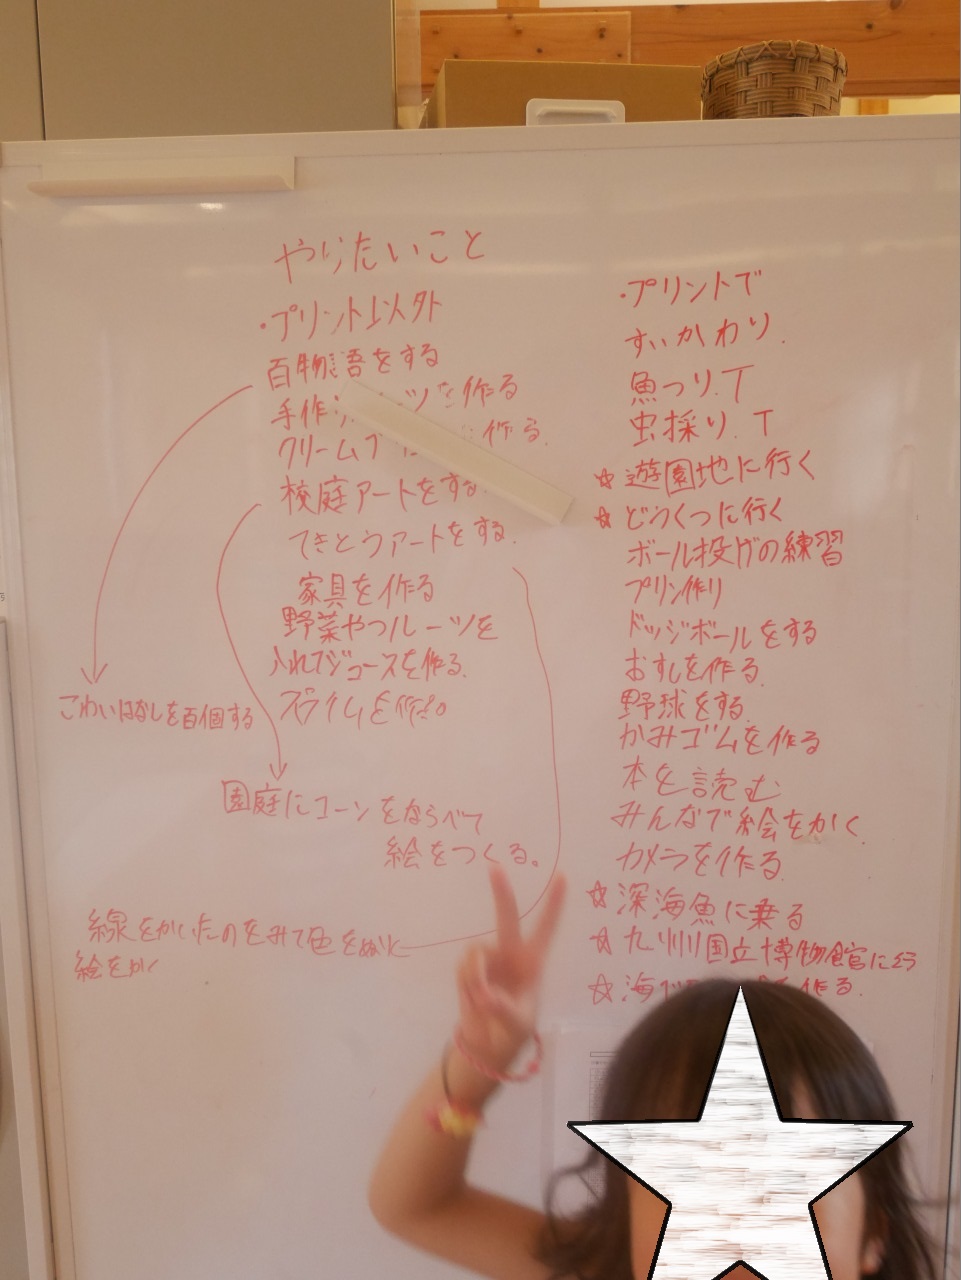 やりたいこと
・プリント以外
百物語をする
手作り ーツを作る
クリームブ 作る。
校庭アートをする
てきとうアートをする。
家具を作る
野菜やフルーツを
入れてジュースを作る。
スライムを作る。
こわいはなしを百個する
園庭にコーンをならべて
絵をつくる。
線をかいたのをみて色をぬって
絵をかく
・プリントで
すいかわり.
魚つり.T
虫採り.T
☆遊園地に行く
☆どうくつに行く
ボール投げの練習
プリン作り
ドッジボールをする
おすしを作る.
野球をする.
かみゴムを作る
本を読む
みんなで絵をかく
カメラを作る
☆深海魚に乗る
☆九州国立博物館に行う
☆海 作る.